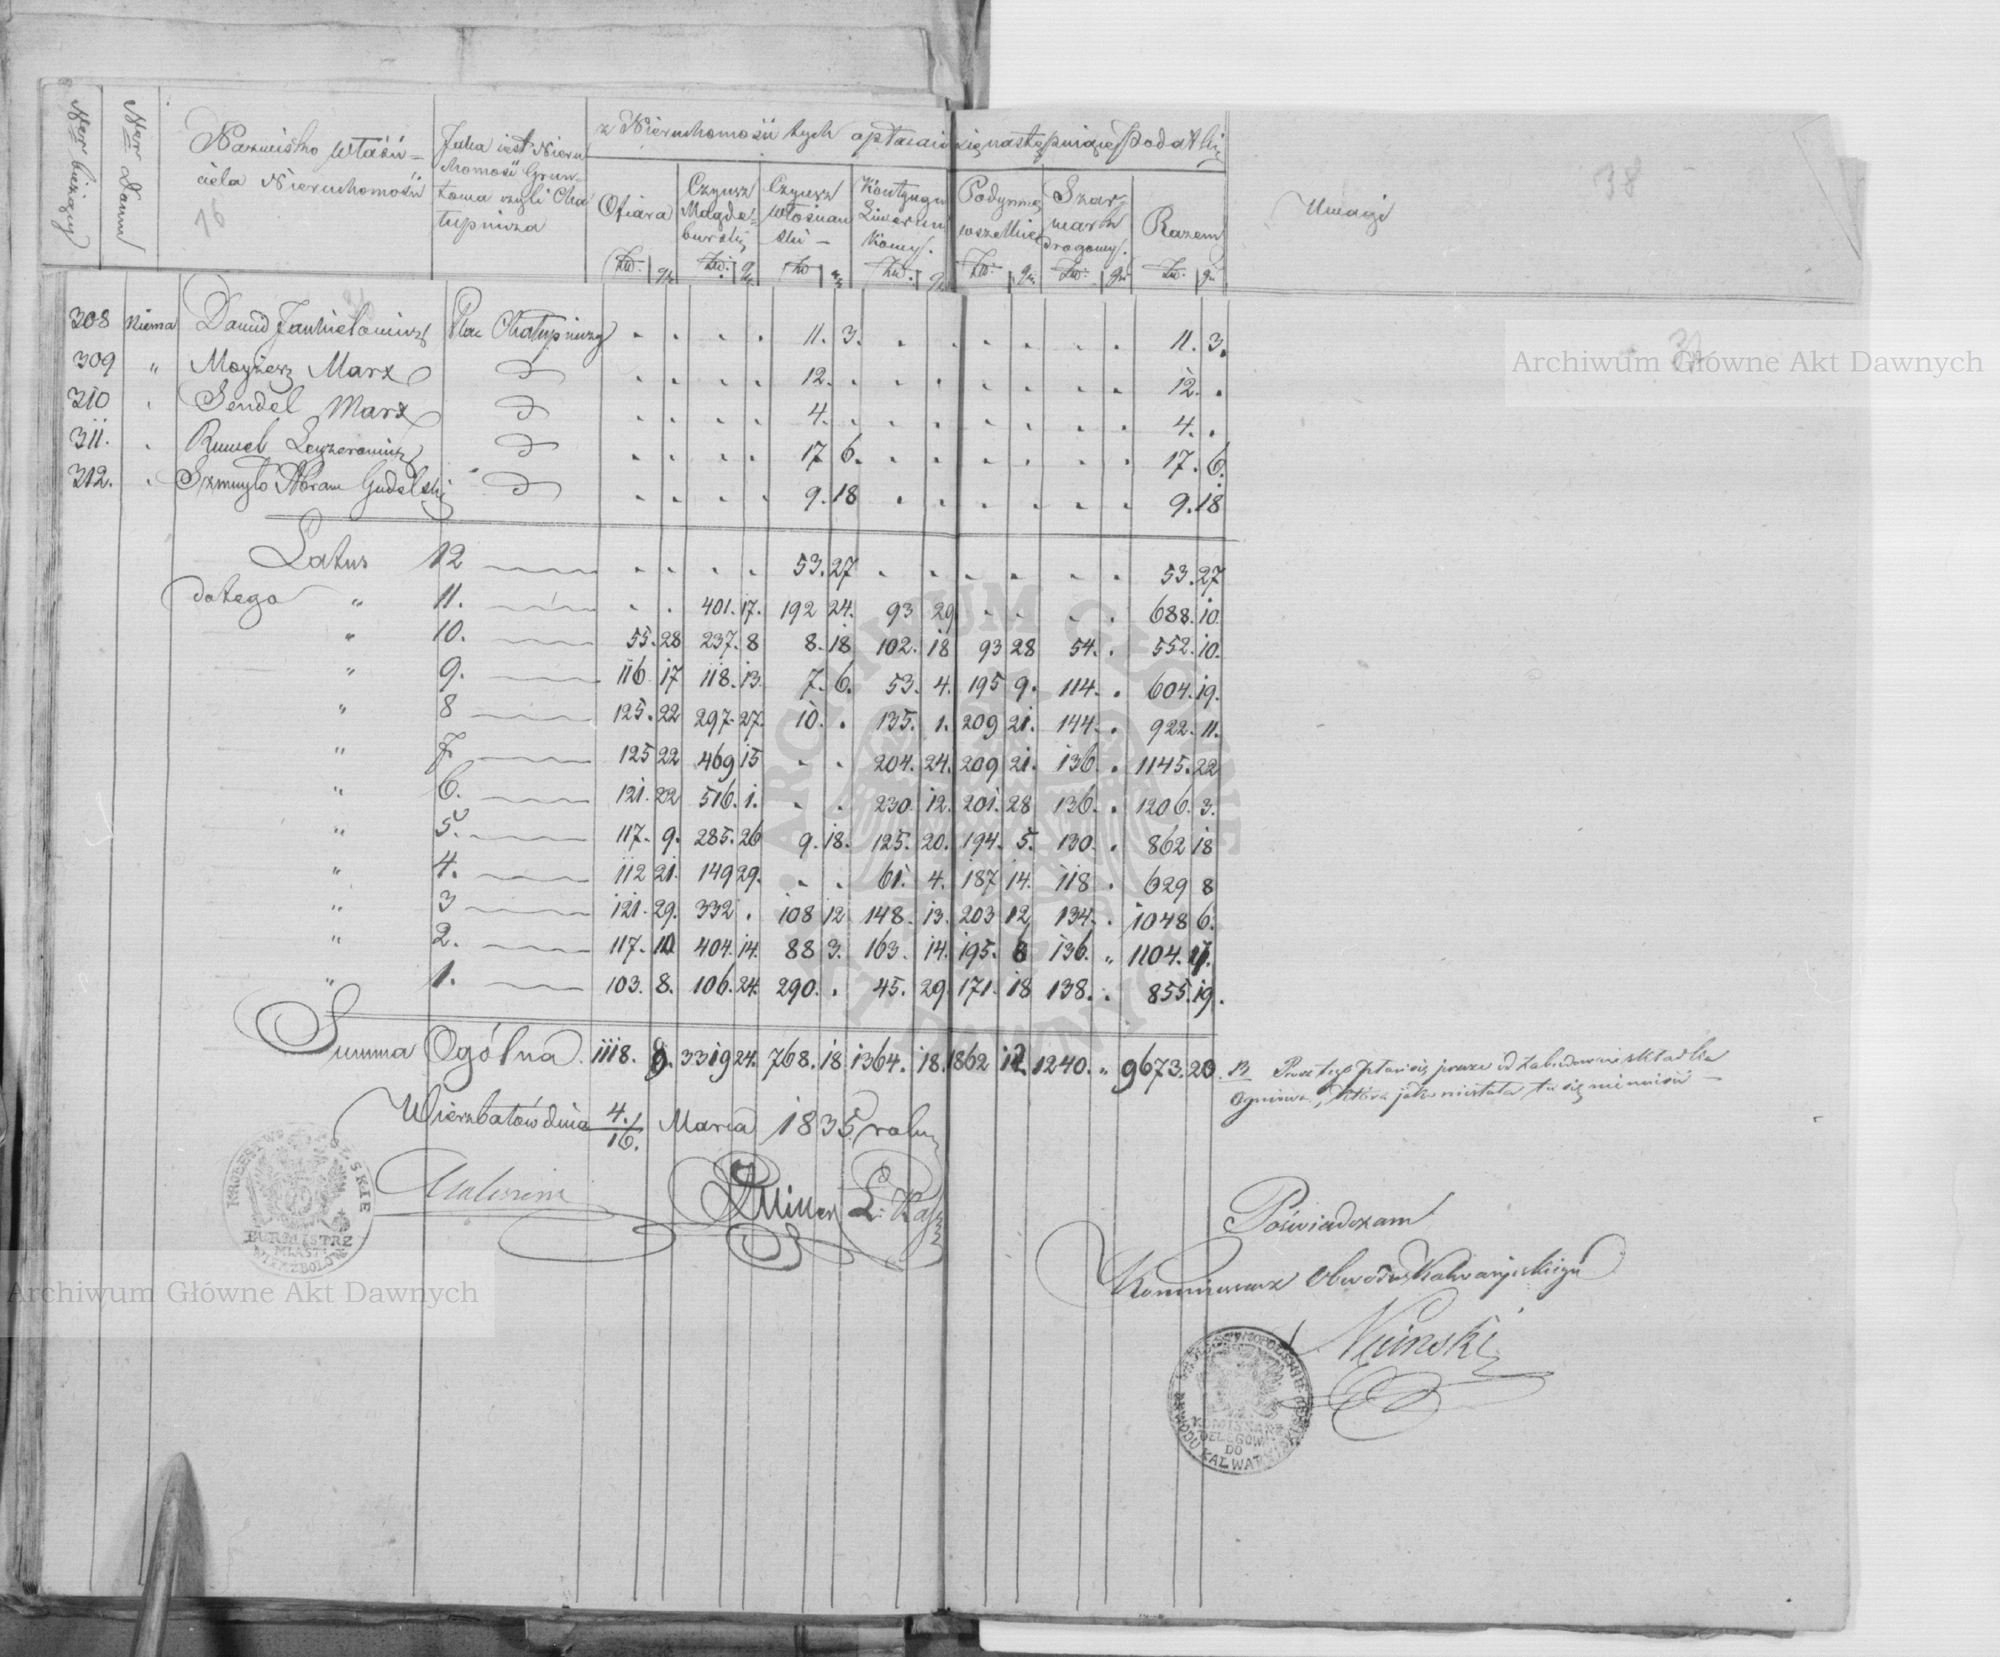 Ner bieżący
Ner Domu
Nazwisko Właści-
ciela Nieruchomości
Jaka jest Nieru
chomość Grun-
towa czyli Cha
łupnicza
z Nieruchomości tych opłacaią się następuiące Podatki
Ofiara
Czynsz
Magde-
burski
Czynsz
Włościan
ski
Kontyngn
Liwerun
kowy.
Podymne
wszelkie
Szar-
wark
drogowy.
Razem
Uwagi
38
Złł. gr. Złł. gr. Złł gr Złł. gr Złł. gr. Złł. gr Złł. gr
308 Niema Dawid Jankielowicz Plac Chałupniczy 11. 3. 11. 3.
309 " Moyżesz Marx D 12. 12.
310 Sendel Marx D 4. 4.
311. D 17 6. 17. 6.
312. Szmuyło Abram Gudelski D 9. 18 9. 18
Latus 12 53. 27 53. 27
dotego " 11. 401. 17. 192 24. 93 29 688. 10.
" 10. 55. 28 237. 8 8. 18 102. 18 93 28 54. 552. 10.
" 9. 116 17 118. 13 7. 6. 53. 4. 195 9. 114. 604. 19.
" 8 125. 22 297. 27. 10. 135. 1. 209 21. 144. 922. 11.
" 7. 125 22 469 15 204. 24. 209 21. 136. 1145. 22
" 6. 121. 22 516. 1. 230 12. 201. 28 136. 1206. 3.
" 5. 117. 9. 285. 26 9. 18. 125. 20. 194. 5. 130. 862 18
" 4. 112 21. 149 29. 61. 4. 187 14. 118 629 8
" 3 121. 29. 332 108 12 148. 13. 203 12 134. 1048 6.
" 2. 117. 404. 14. 88 3. 163. 14. 195. 6 136. " 1104.
" 1. 103. 8. 106. 24. 290. 45. 29. 171. 18 138. 855. 19.
Summa Ogólna 1118. 9. 3319 24. 768. 18 1364. 18. 1862 1240. " 9673. 20
Wierzbołów dnia 4./16. Marca 1835 roku
Poświadczam
Kommissarz Obwodu Kalwaryiskiego
BURMISTRZ
MIASTA
KOMISSARZ
DELEGOW.
DO
OBWODU KALWARYISK
ARCHIWUM GŁÓWNE
AKT DAWNYCH
Archiwum Główne Akt Dawnych
Archiwum Główne Akt Dawnych